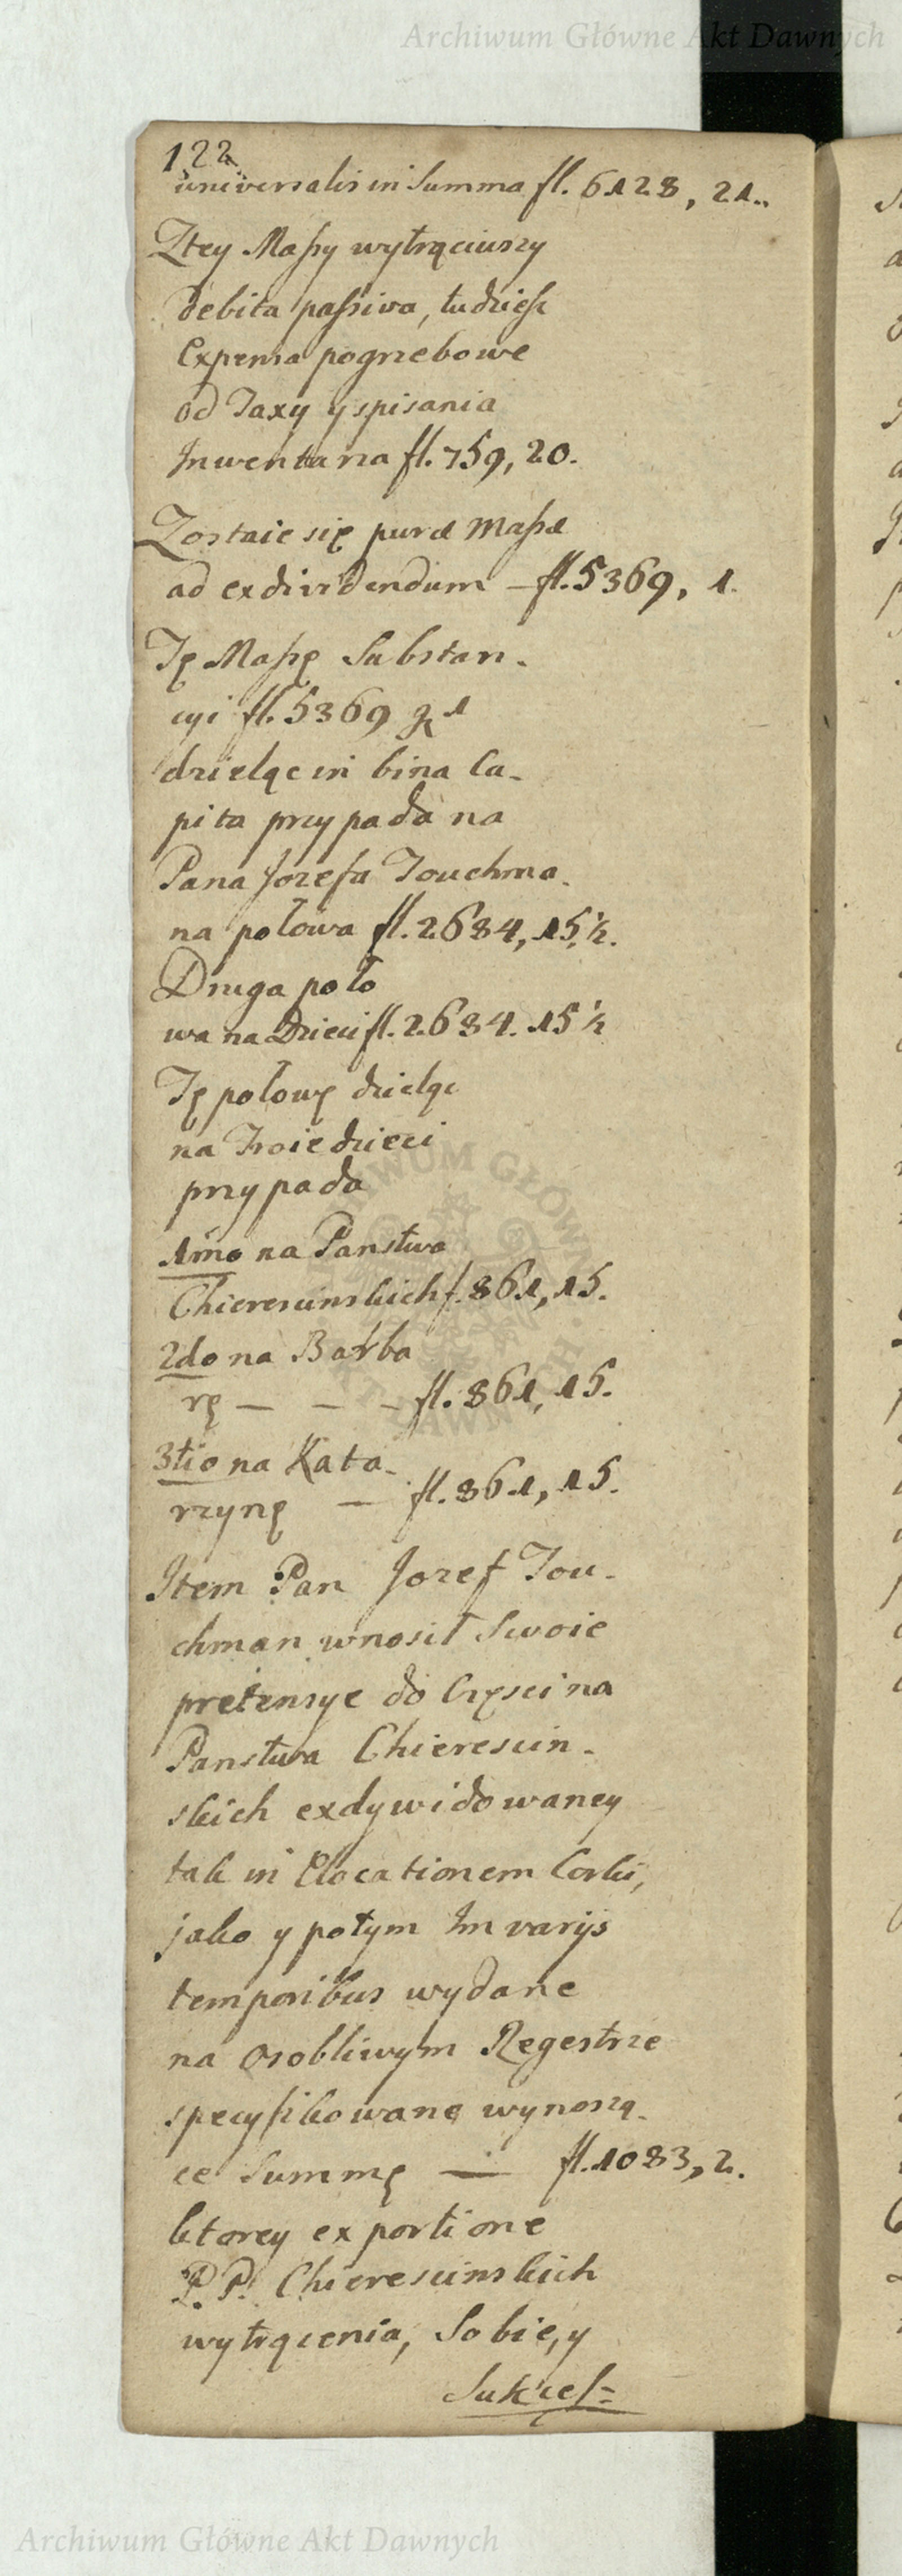 Archiwum Główne Akt Dawnych
122.
universalis in Summa fl. 6128, 21..
Ztey Massy wytrąciwszy
debita passiva, tudziesz
Expensa pogrzebowe
od Taxy y spisania
Inwentarza fl. 759, 20.
Zostaie się puræ Massæ
ad exdividendum — fl. 5369, 1.
Tę Massę Substan-
cyi fl. 5369 g 1
dzieląc in bina Ca-
pita przypada na
Pana Jozefa Touchma-
na połowa fl. 2684, 15,½.
Druga poło
wa na Dzieci fl. 2684. 15 ½
Tę połowę dzieląc
na Troie dzieci
przypada
1mo na Panstwa
Chierescinskich f. 861, 15.
2do na Barba
rę — — — fl. 861, 15.
3tio na Kata-
rzynę — fl. 861, 15.
Item Pan Jozef Tou-
chman wnosił Swoie
pretensye do Częsci na
Panstwa Chierescin-
skich exdywidowaney
tak in Elocationem Corki,
jako y potym Im varijs
temporibus wydane
na osobliwym Regestrze
specyfikowane wynoszą-
ce Summę — fl. 1083, 2.
ktorey ex portione
P. P. Chierescinskich
wytrącenia, Sobie, y
Sukces=
ARCHIWUM GŁÓWNE AKT DAWNYCH
Archiwum Główne Akt Dawnych